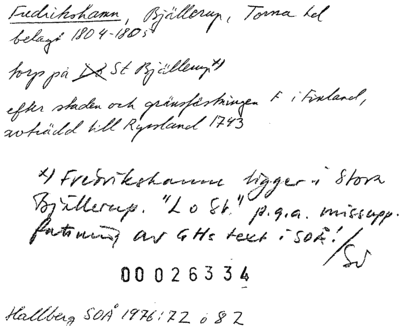 Fredrikshamn, Bjällerup, Torna hd
belagt 1804-1805
torp på Lo St Bjällerup *)
efter staden och gränsfästningen F i Finland,
avträdd till Ryssland 1743
*) Fredrikshamn ligger i Stora
Bjällerup. "L o St." p.g.a. missupp-
fattning av GHs text i SOÅ! /
00026334
Hallberg SOÅ 1976:72 o 82